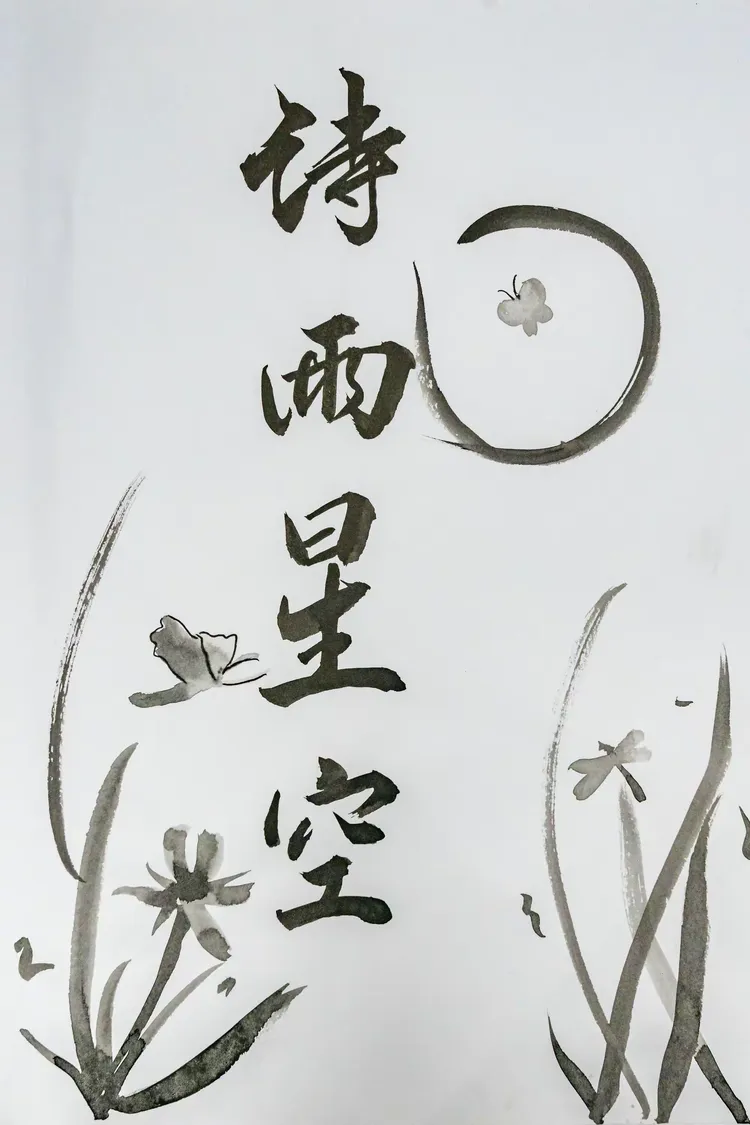 诗雨星空